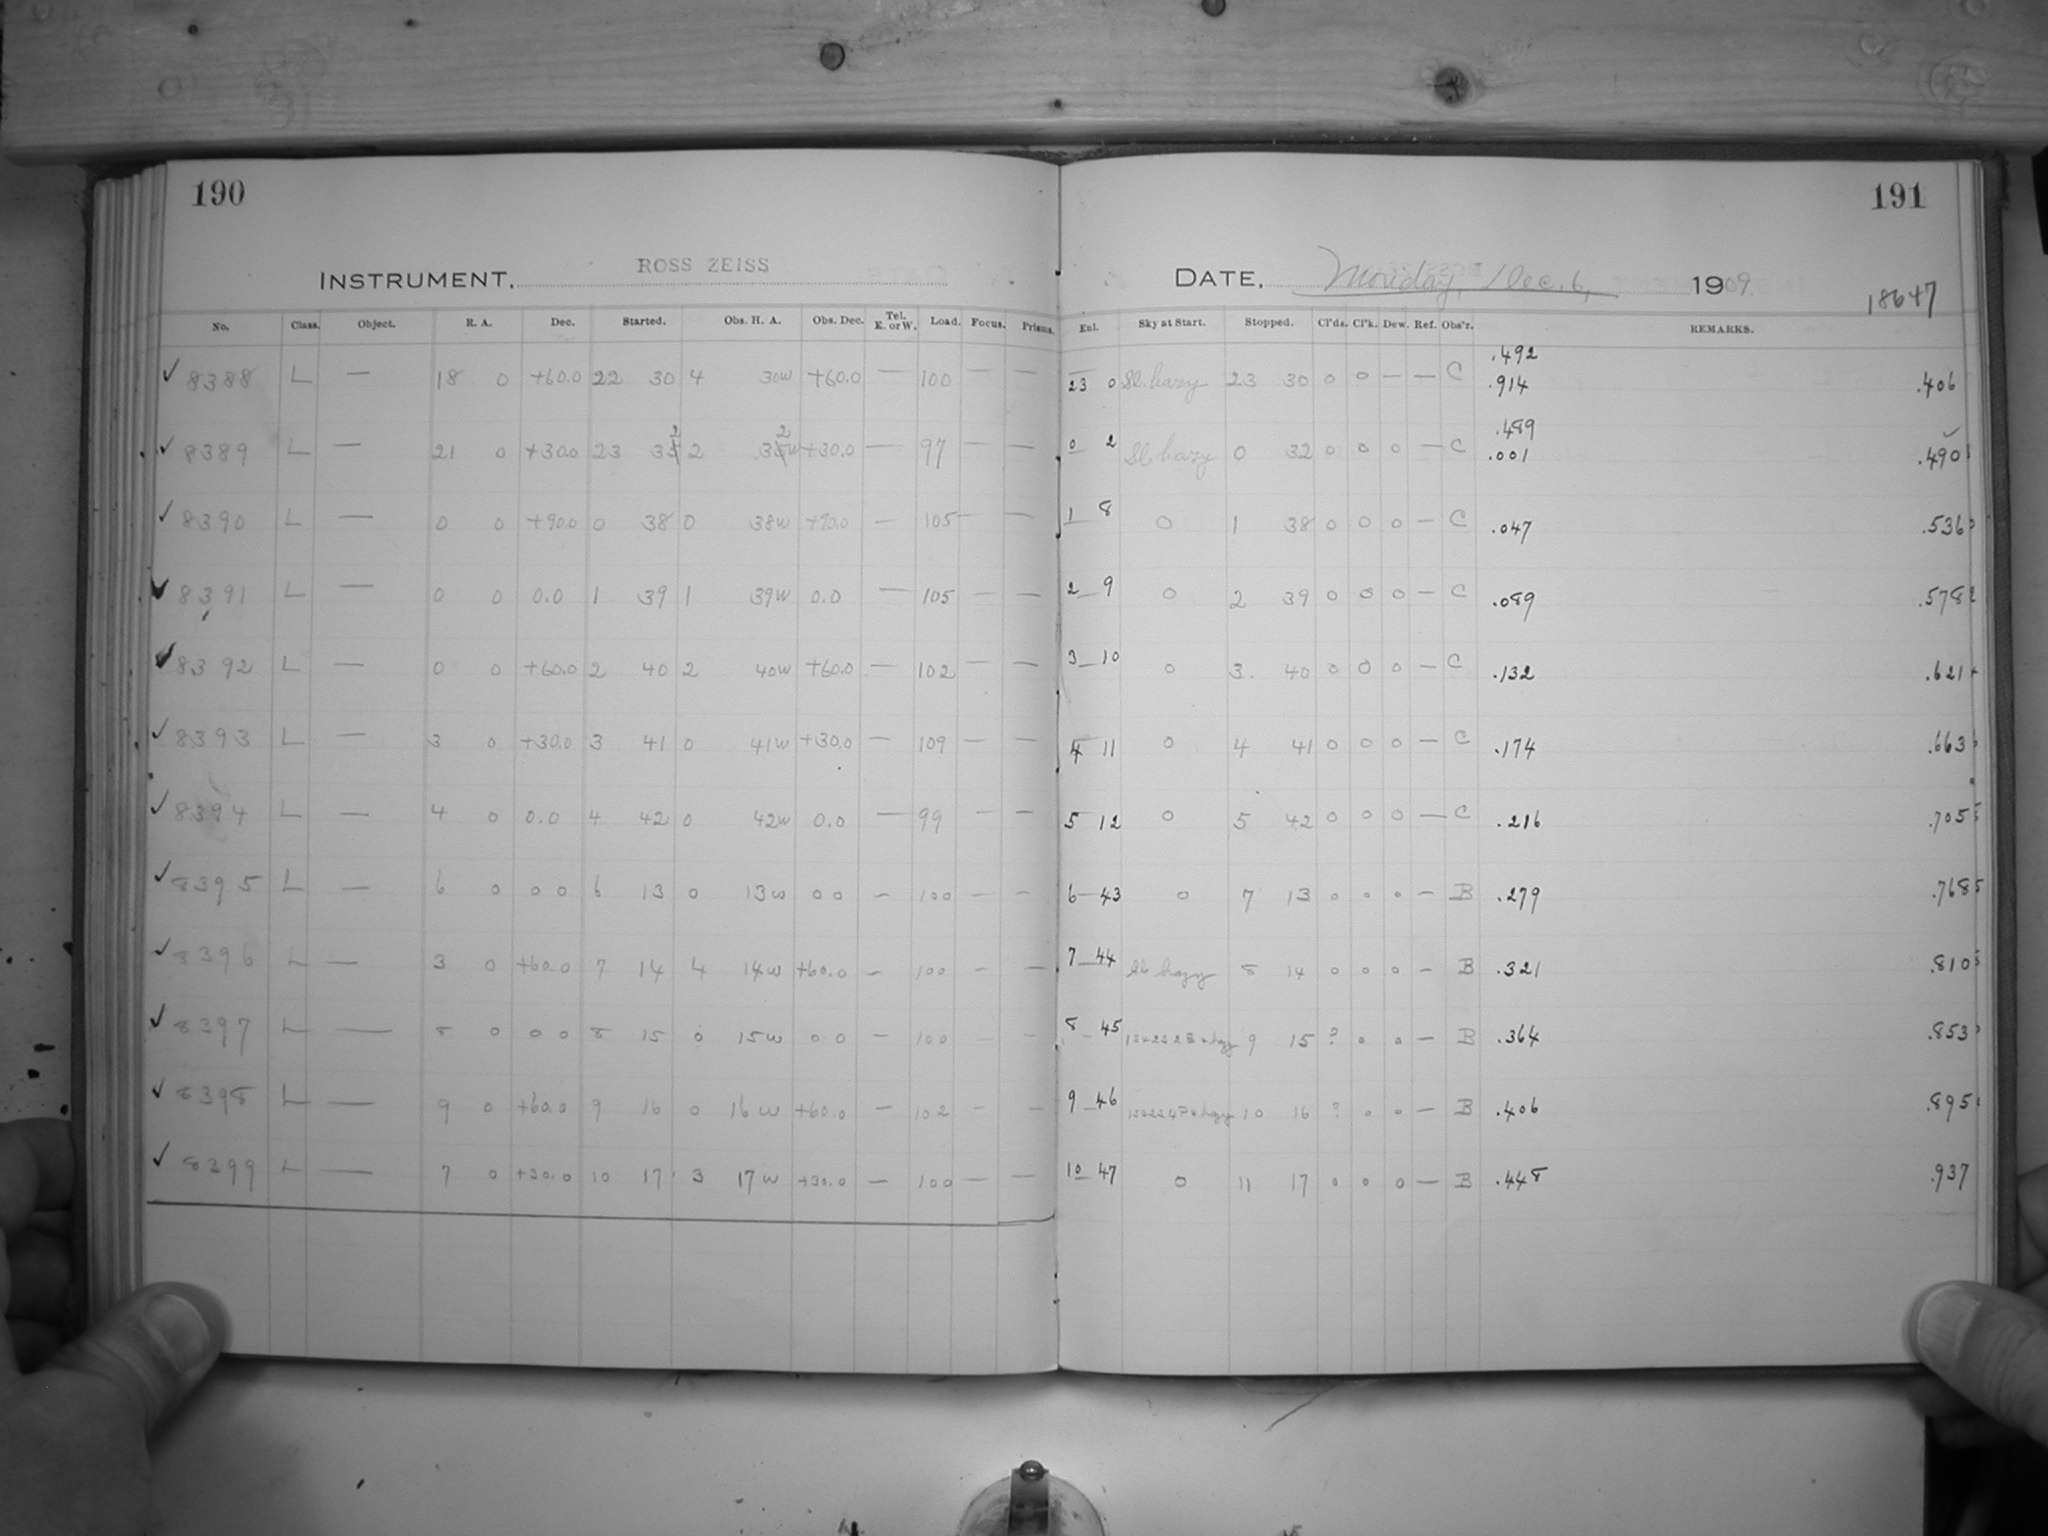 190
191
INSTRUMENT, ROSS ZEISS
DATE, Monday, Dec. 6, 1909
18647
No. Class. Object. R. A. Dec. Started. Obs. H. A. Obs. Dec. Tel. E. or W. Load. Focus. Prisms. Enl. Sky at Start. Stopped. Cl'ds. Cl'k. Dew. Ref. Obs'r. REMARKS.
.492
✓ 8388 L — 18 0 +60.0 22 30 4 30w +60.0 — 100 — — 23 0 Sl. hazy 23 30 0 0 — — C .914 .406
2 2 .489
✓ 8389 L — 21 0 +30.0 23 33 2 33w +30.0 — 97 — — 0 2 Sl. hazy 0 32 0 0 0 — C .001 .490
✓ 8390 L — 0 0 +90.0 0 38 0 38w +90.0 — 105 — — 1 8 0 1 38 0 0 0 — C .047 .536
✓ 8391 L — 0 0 0.0 1 39 1 39w 0.0 — 105 — — 2 9 0 2 39 0 0 0 — C .089 .578
✓ 8392 L — 0 0 +60.0 2 40 2 40w +60.0 — 102 — — 3 10 0 3 40 0 0 0 — C .132 .621
✓ 8393 L — 3 0 +30.0 3 41 0 41w +30.0 — 109 — — 4 11 0 4 41 0 0 0 — C .174 .663
✓ 8394 L — 4 0 0.0 4 42 0 42w 0.0 — 99 — — 5 12 0 5 42 0 0 0 — C .216 .705
✓ 8395 L — 6 0 0 0 6 13 0 13w 0 0 — 100 — — 6 43 0 7 13 0 0 0 — B .279 .768
✓ 8396 L — 3 0 +60.0 7 14 4 14w +60.0 — 100 — — 7 44 Sl. hazy 8 14 0 0 0 — B .321 .810
✓ 8397 L — 8 0 0 0 8 15 0 15w 0.0 — 100 — — 8 45 9 15 ? 0 0 — B .364 .853
✓ 8398 L — 9 0 +60.0 9 16 0 16w +60.0 — 102 — — 9 46 10 16 ? 0 0 — B .406 .895
✓ 8399 L — 7 0 +30.0 10 17 3 17w +30.0 — 100 — — 10 47 0 11 17 0 0 0 — B .448 .937